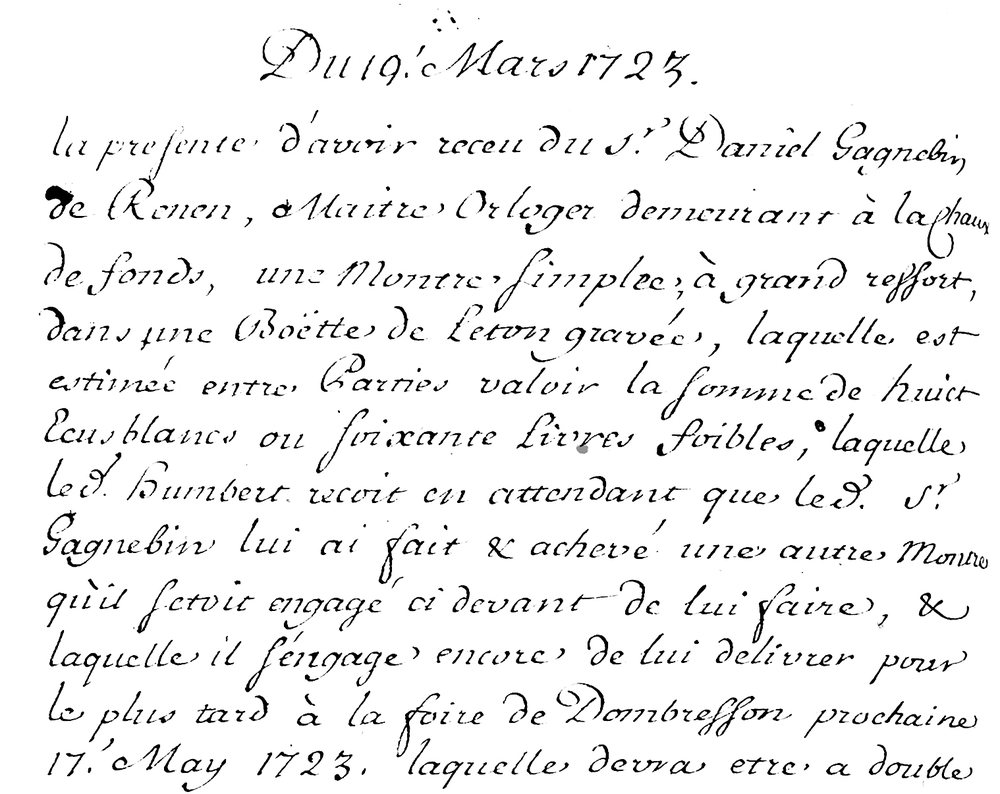 Du 19.e Mars 1723.
la presente d'avoir receu du Sr. Daniel Gagnebin
de Renen, Maitre Orloger demeurant à la Chaux
de fonds, une Montre simple, à grand ressort,
dans une Boëtte de Leton gravée, laquelle est
estimée entre Parties valoir la somme de huict
Ecus blancs ou soixante Livres foibles, laquelle
led. Humbert recoit en attendant que led. Sr
Gagnebin lui ai fait & achevé une autre Montre
qu'il setoit engagé ci devant de lui faire, &
laquelle il s'éngage encore de lui delivrer pour
le plus tard à la foire de Dombresson prochaine
17.e May 1723. laquelle devra etre a double